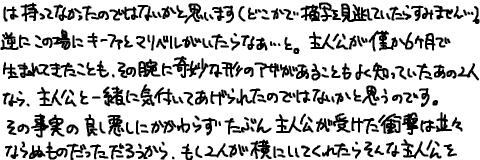 は持ってなかったのではないかと思います(どこかで描写を見逃していたらすみません…)。
逆にこの場にキーファとマリベルがいたらなぁ…と。主人公が僅か6ヶ月で
生まれてきたことも、その腕に奇妙な形のアザがあることもよく知っていたあの2人
なら、主人公と一緒に気付いてあげられたのではないかと思うのです。
その事実の良し悪しにかかわらず たぶん 主人公が受けた衝撃は並々
ならぬものだっただろうから、もし2人が横にいてくれたらそんな主人公を